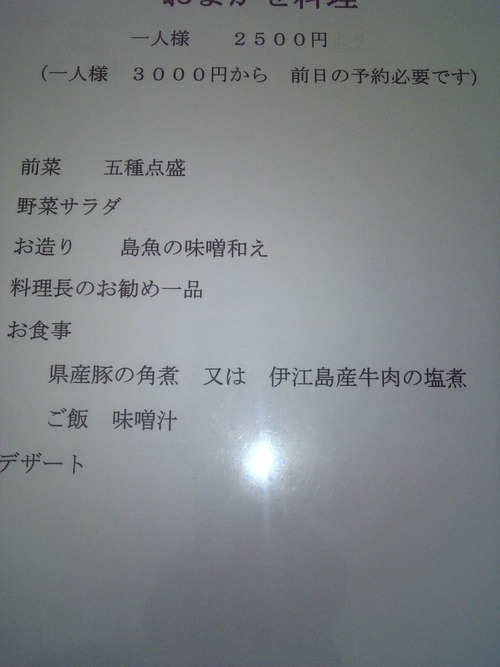 おまかせ料理
一人様　２５００円より
（一人様　３０００円から　前日の予約必要です）
前菜　五種点盛
野菜サラダ
お造り　島魚の味噌和え
料理長のお勧め一品
お食事
県産豚の角煮　又は　伊江島産牛肉の塩煮
ご飯　味噌汁
デザート